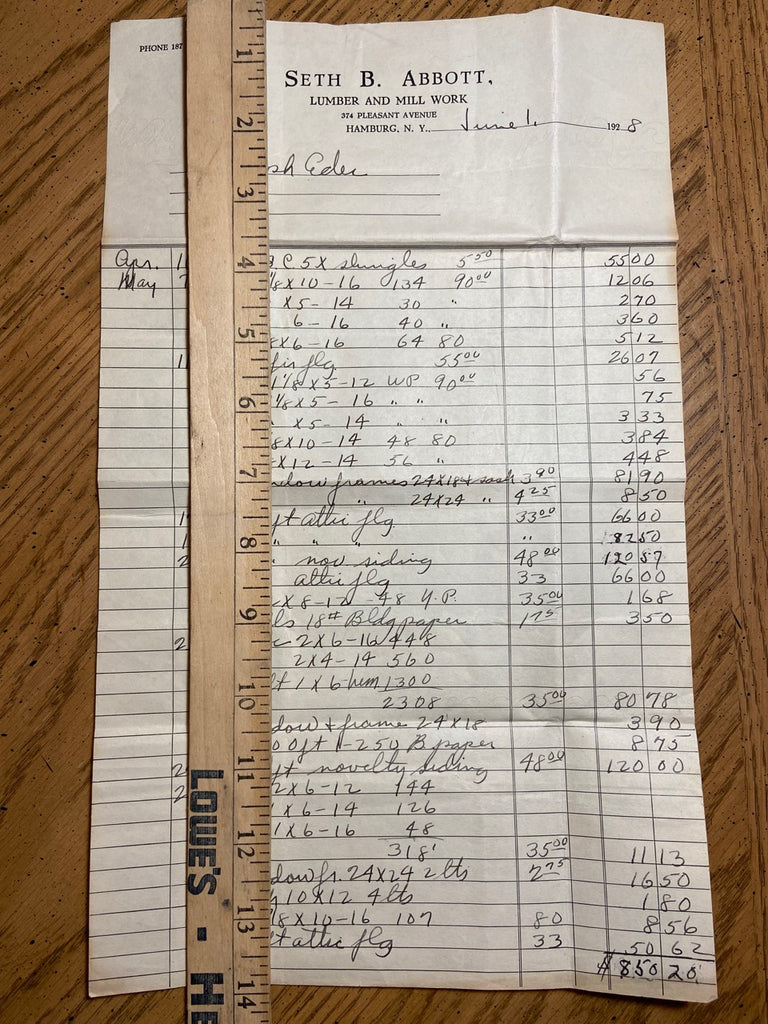 PHONE 187
SETH B. ABBOTT,
LUMBER AND MILL WORK
374 PLEASANT AVENUE
HAMBURG, N. Y., June 1, 1928
sh Eder
Apr. 1 C 5X shingles 5 50 55 00
May 7 1/8 X 10 - 16 134 90 00 12 06
X 5 - 14 30 " 2 70
6 - 16 40 " 3 60
8 X 6 - 16 64 80 5 12
1 fir flg 55 00 26 07
1 1/8 X 5 - 12 WP 90 00 56
1/8 X 5 - 16 " " 75
" X 5 - 14 " " 3 33
8 X 10 - 14 48 80 3 84
" X 12 - 14 56 " 4 48
dow frames 24X18 + sash 3 90 81 90
" 24X24 " 4 25 8 50
1 ft attic flg 33 00 66 00
1 " " " " 82 50
2 " nov siding 48 00 120 57
attic flg 33 66 00
X 8 - 12 48 Y.P. 35 00 1 68
ls 18# Bldg paper 1 75 3 50
2 c 2 X 6 - 16 448
2 X 4 - 14 560
ft 1 X 6 hem 1300
2308 35 00 80 78
dow + frame 24 X 18 3 90
0 0 ft 1 - 250 B paper 8 75
2 ft novelty siding 48 00 120 00
2 2 X 6 - 12 144
1 X 6 - 14 126
1 X 6 - 16 48
318' 35 00 11 13
dow fr. 24X24 2 lts 2 75 16 50
10 X 12 4 lts 1 80
1 8 X 10 - 16 107 80 8 56
ft attic flg 33 50 62
$ 850 20
1 2 3 4 5 6 7 8 9 10 11 12 13 14
LOWE'S • HE